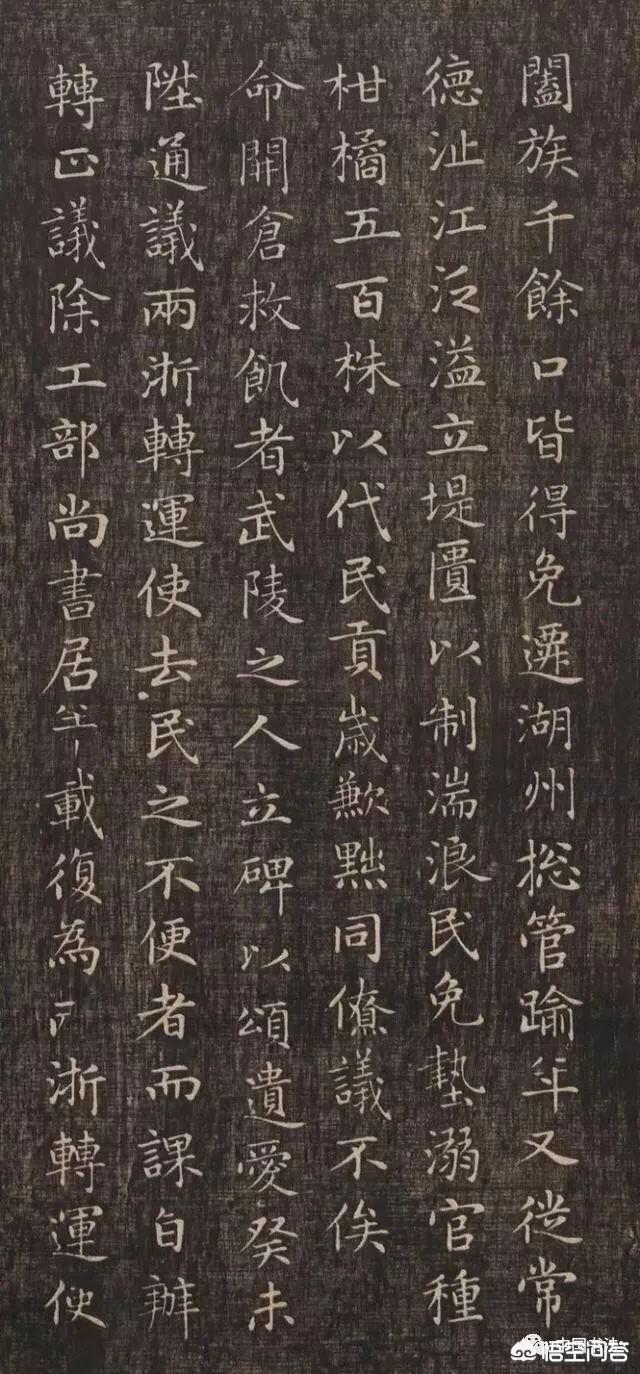 闔族千餘口皆得免遷湖州捴管踰年又從常
德沚江泛溢立堤匱以制湍浪民免墊溺官種
柑橘五百株以代民貢歲歉黙同僚議不俟
命開倉救飢者武陵之人立碑以頌遺愛癸未
陞通議兩浙轉運使去民之不便者而課自辦
轉正議除工部尚書居年載復為兩浙轉運使
中国书法
悟空问答